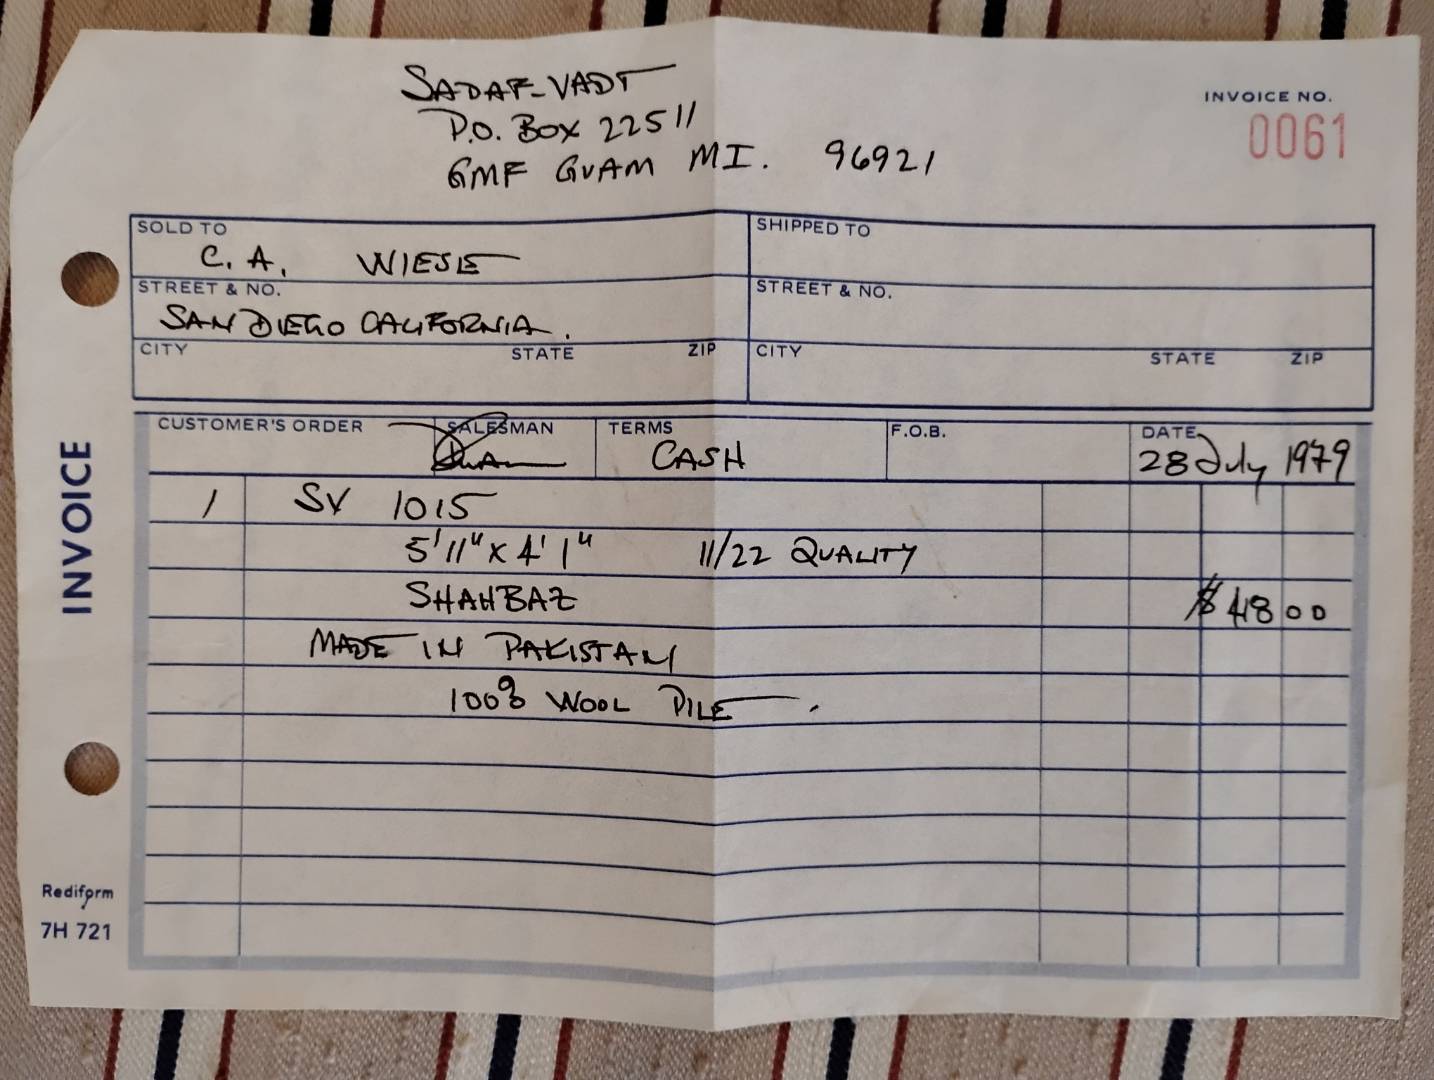 SADAF-VADT
P.O. BOX 22511
GMF GUAM MI. 96921
INVOICE NO.
0061
SOLD TO
C. A. WIESE
SHIPPED TO
STREET & NO.
SAN DIEGO CALIFORNIA.
STREET & NO.
CITY STATE ZIP
CITY STATE ZIP
CUSTOMER'S ORDER
SALESMAN
TERMS
CASH
F.O.B.
DATE
28 July 1979
1 SV 1015
5'11" X 4'1" 11/22 QUALITY
SHAHBAZ $48 00
MADE IN PAKISTAN
100% WOOL PILE.
INVOICE
Rediform
7H 721